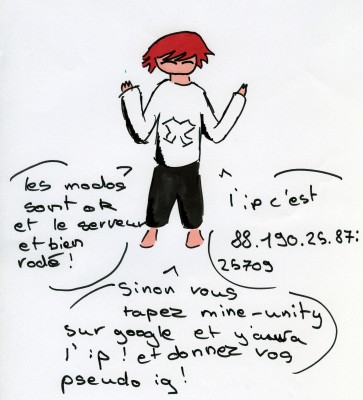 les modos
sont ok
et le serveur
et bien
rodé !
l'ip c'est
88.190.25.87:
25709
Sinon vous
tapez mine-unity
sur google et y'aura
l'ip ! et donnez vos
pseudo ig !